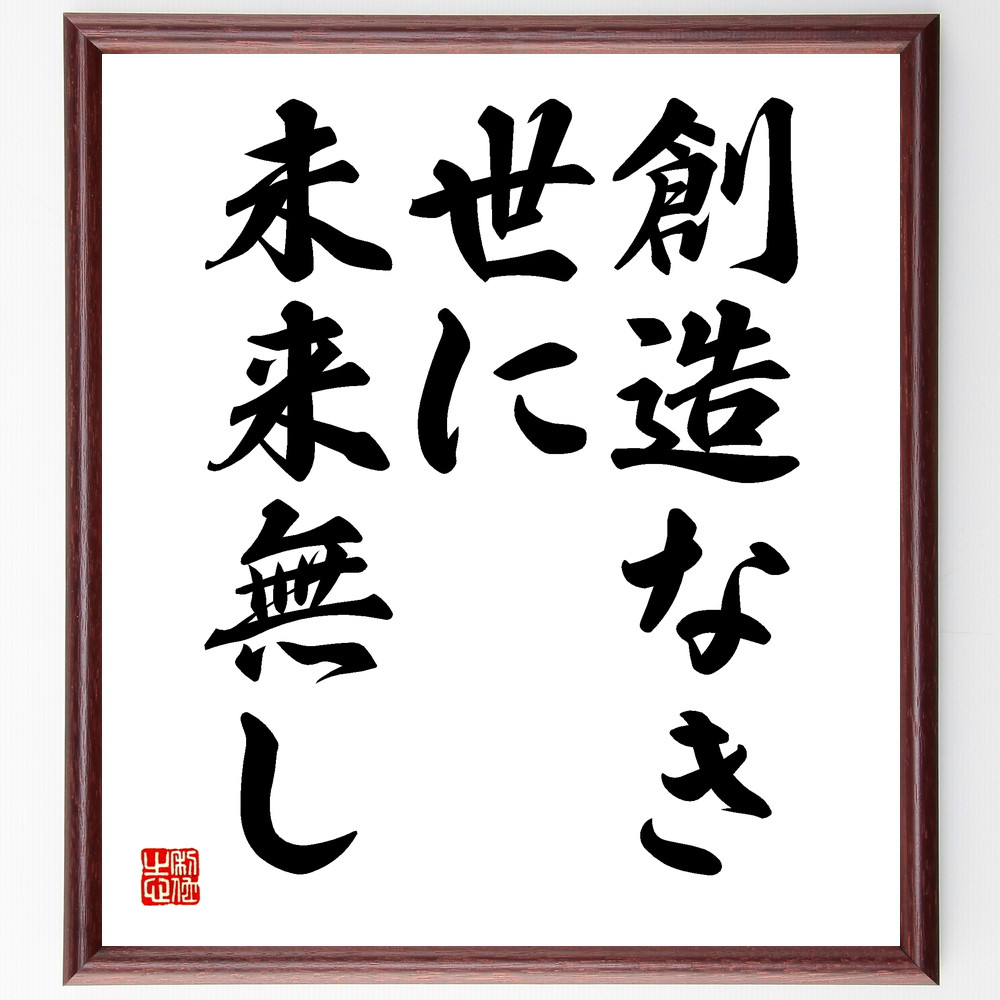 創造なき
世に
未来無し